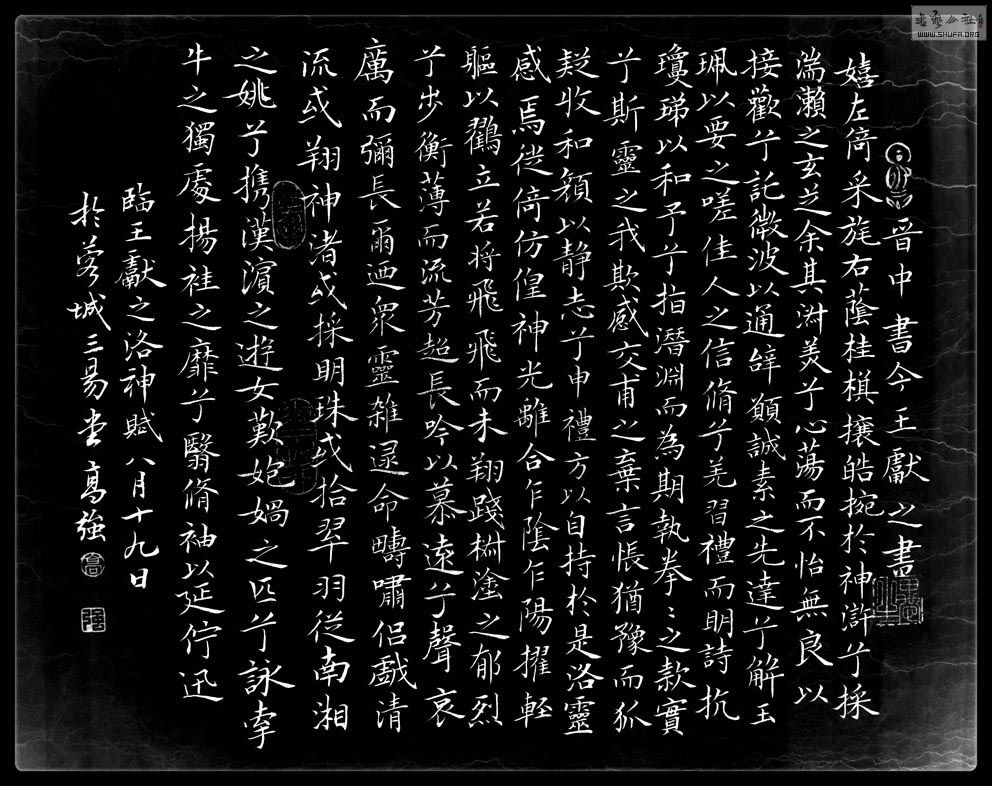 晉中書令王獻之書
嬉左倚采旄右蔭桂棋攘皓捥於神滸兮採
湍瀨之玄芝余其淑美兮心蕩而不怡無良以
接歡兮託微波以通辝願誠素之先達兮解玉
珮以要之嗟佳人之信脩兮羌習禮而明詩抗
瓊珶以和予兮指潛淵而為期執拳〻之款實
兮斯靈之我欺感交甫之棄言悵猶豫而狐
疑收和顏以靜志兮申禮方以自持於是洛靈
感焉徙倚仿偟神光離合乍陰乍陽擢輕
軀以鶴立若將飛飛而未翔踐椒塗之郁烈
兮步衡薄而流芳超長吟以慕遠兮聲哀
厲而彌長爾迺眾靈雜遝命疇嘯侶戲清
流或翔神渚或採明珠或拾翠羽從南湘
之姚兮携漢濵之遊女歎匏媧之匹兮詠牽
牛之獨處揚袿之靡兮翳脩袖以延佇迅
臨王獻之洛神賦八月十九日
於蓉城三易堂高強
高
強
WWW.SHUFA.ORG